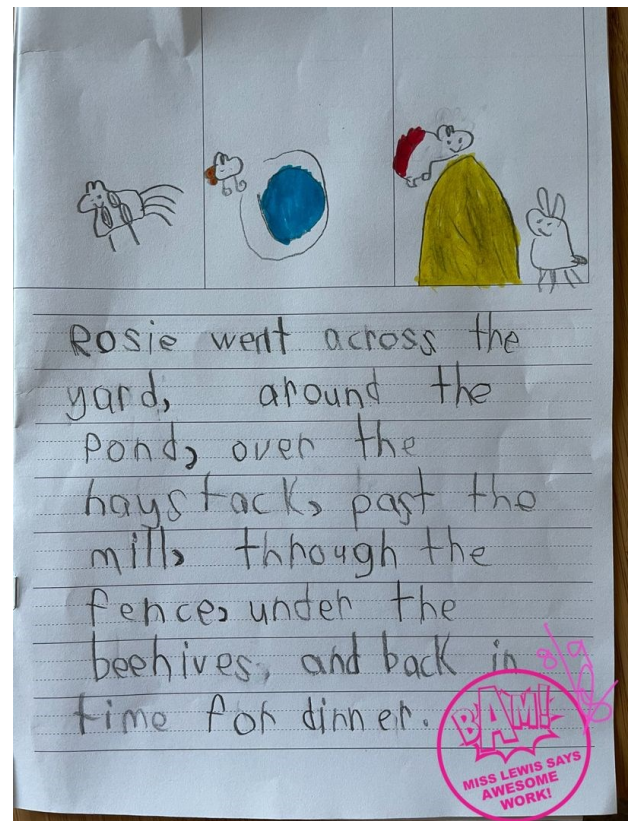 Rosie went across the
yard, around the
pond, over the
haystack, past the
mill, through the
fence, under the
beehives, and back in
time for dinner.
BAM!
MISS LEWIS SAYS
AWESOME
WORK!